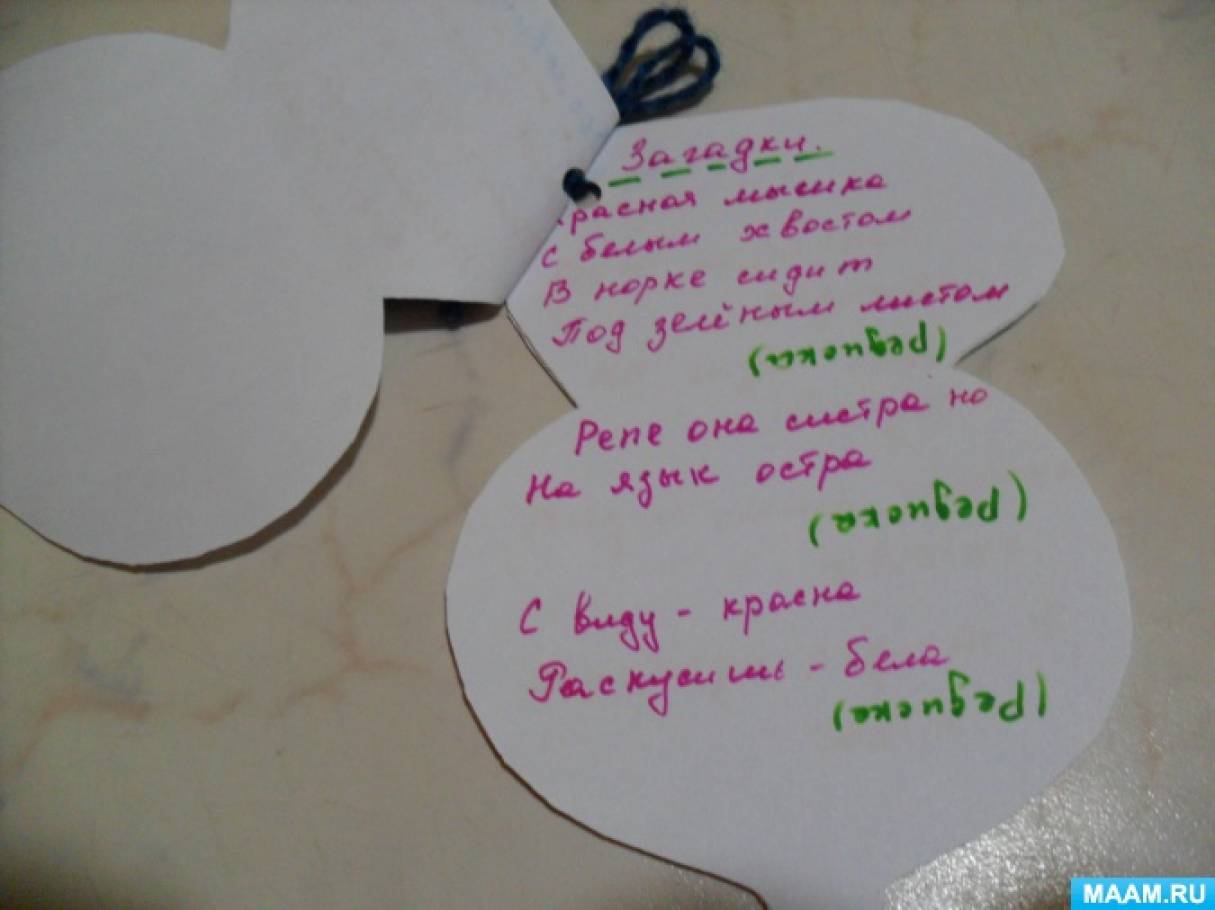 Загадки.
Красная мышка
с белым хвостом
В норке сидит
Под зелёным листом
(редиска)
Репе она систра но
На язык остра
(редиска)
С виду - красна
Раскусишь - бела
(редиска)
MAAM.RU